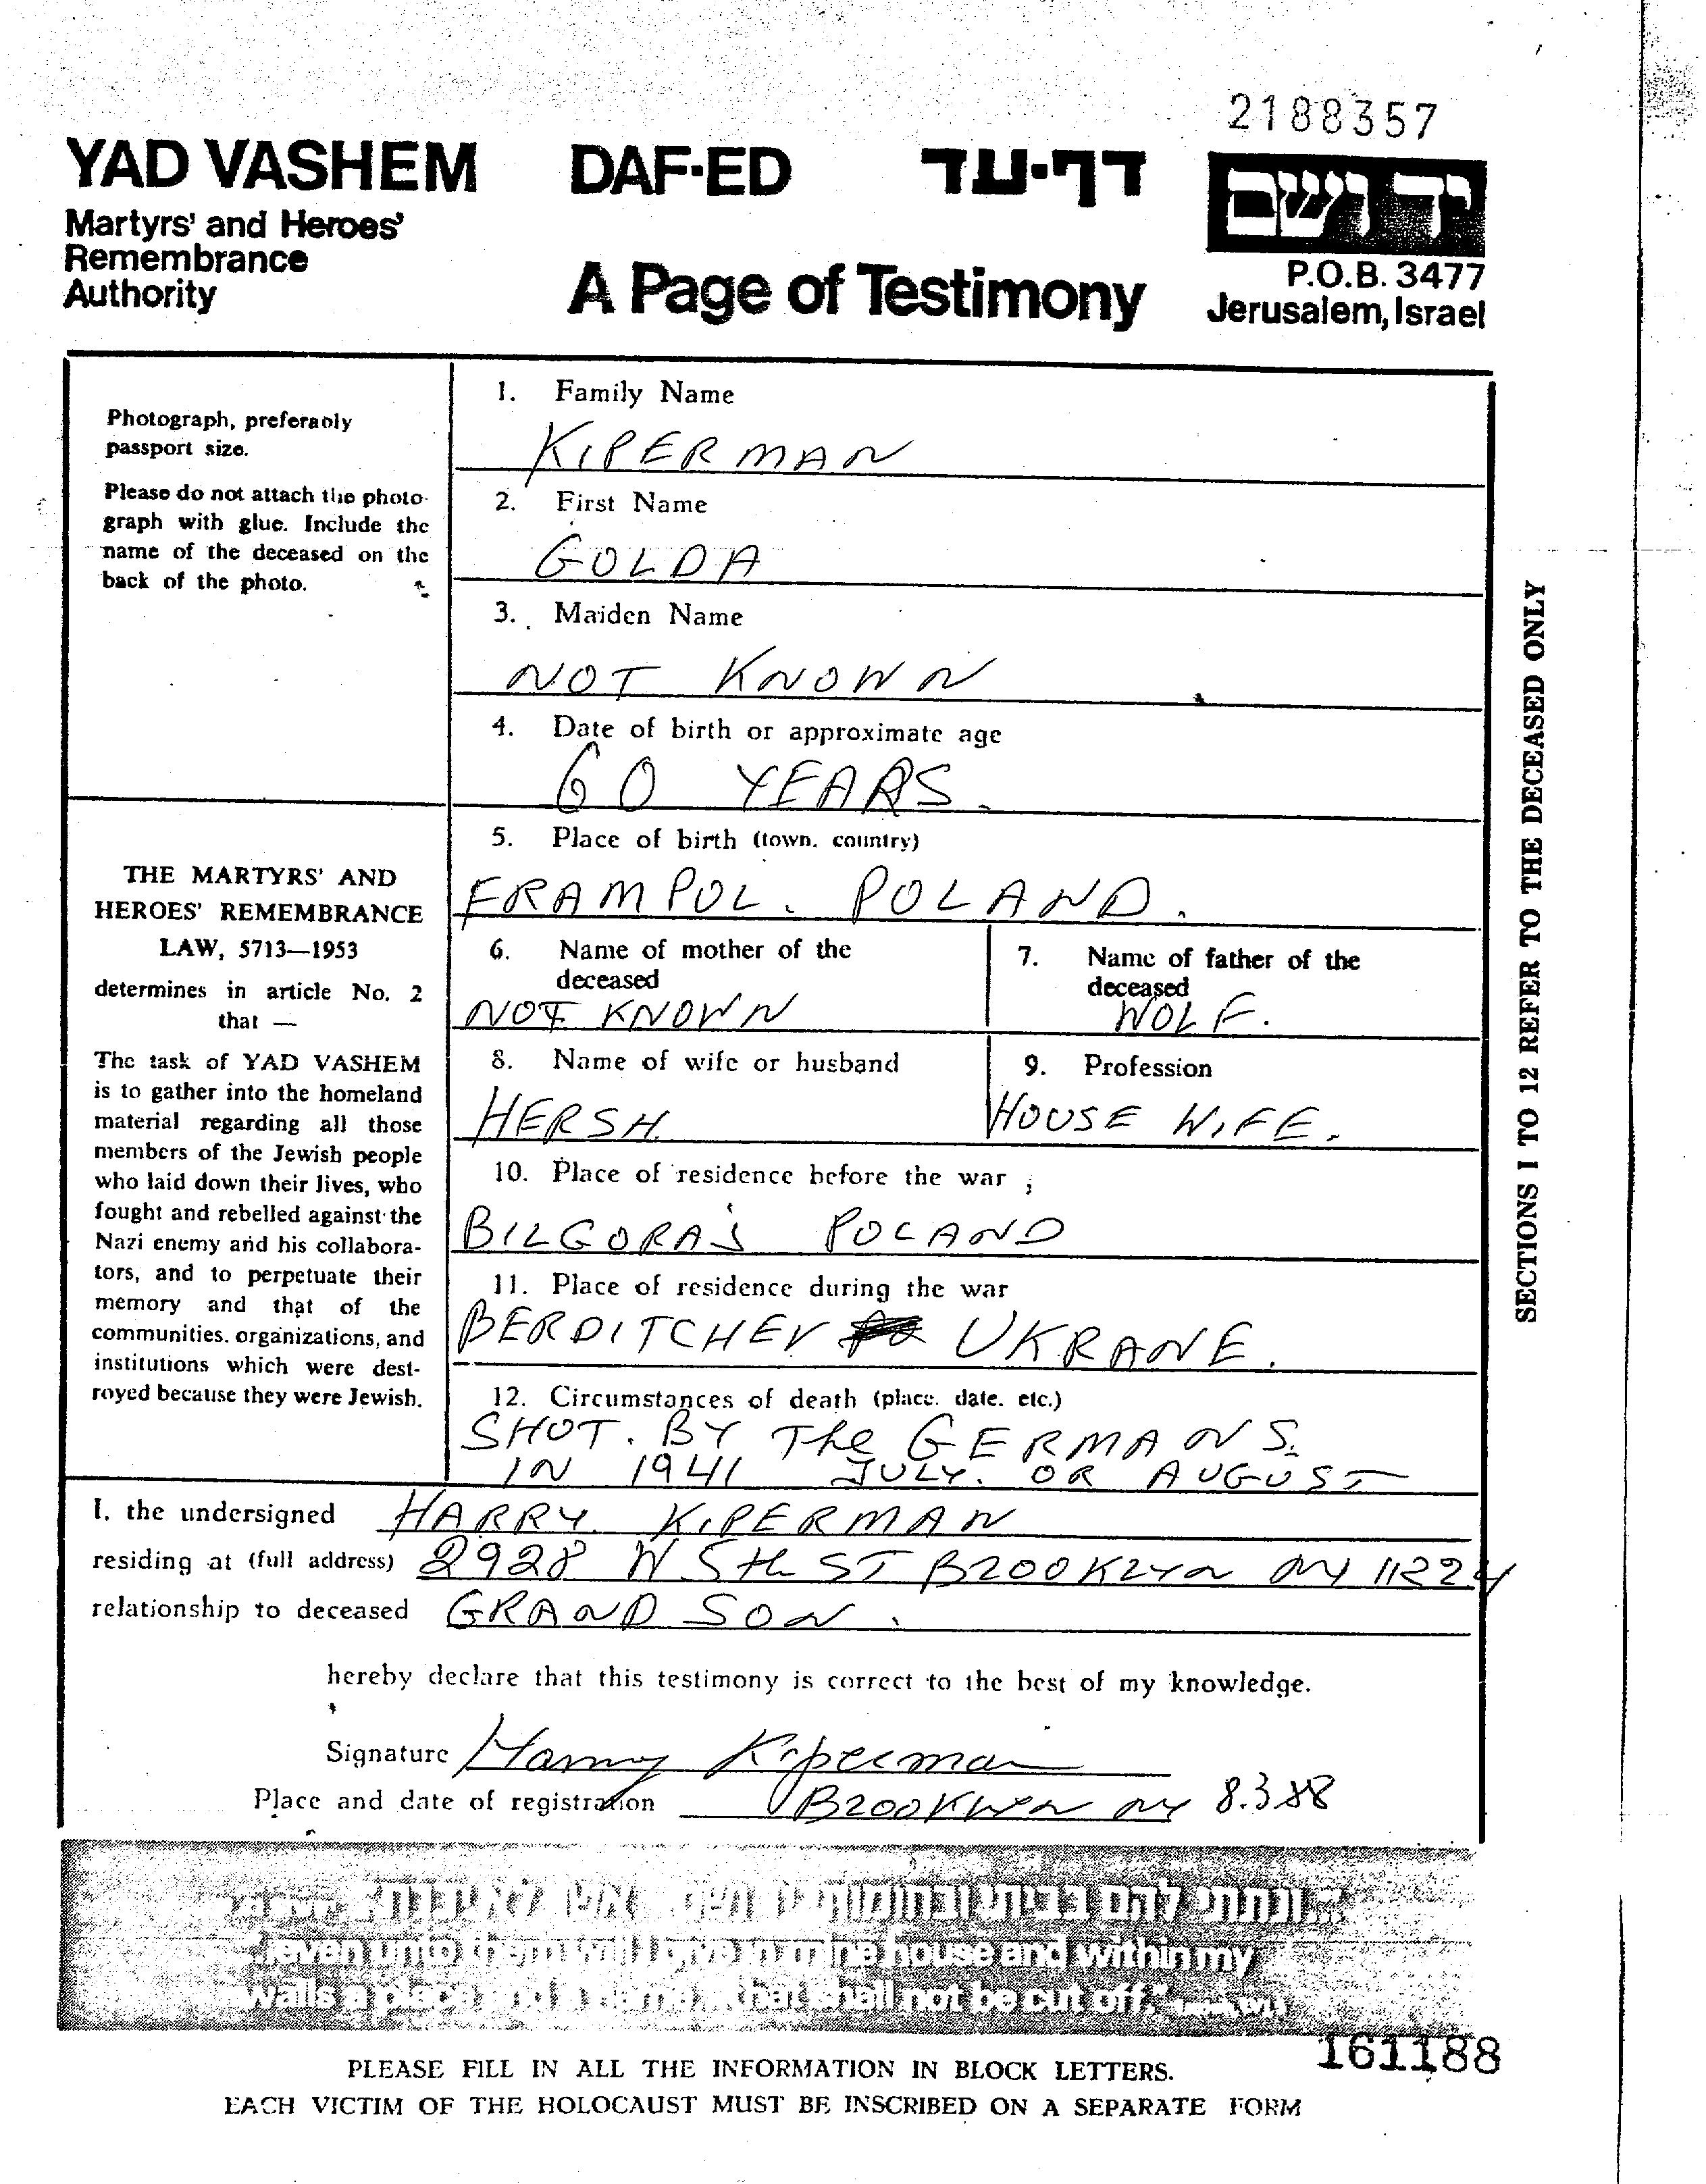 2188357
YAD VASHEM DAF-ED דף-עד ידושם
Martyrs' and Heroes'
Remembrance
Authority
A Page of Testimony
P.O.B. 3477
Jerusalem, Israel
Photograph, preferably
passport size.
Please do not attach the photo-
graph with glue. Include the
name of the deceased on the
back of the photo.
THE MARTYRS' AND
HEROES' REMEMBRANCE
LAW, 5713—1953
determines in article No. 2
that —
The task of YAD VASHEM
is to gather into the homeland
material regarding all those
members of the Jewish people
who laid down their lives, who
fought and rebelled against the
Nazi enemy and his collabora-
tors, and to perpetuate their
memory and that of the
communities, organizations, and
institutions which were dest-
royed because they were Jewish.
1. Family Name
KIPERMAN
2. First Name
GOLDA
3. Maiden Name
NOT KNOWN
4. Date of birth or approximate age
60 YEARS.
5. Place of birth (town, country)
FRAMPOL. POLAND.
6. Name of mother of the
deceased
NOT KNOWN
7. Name of father of the
deceased
WOLF.
8. Name of wife or husband
HERSH.
9. Profession
HOUSE WIFE.
10. Place of residence before the war
BILGORAJ POLAND
11. Place of residence during the war
BERDITCHEV UKRANE.
12. Circumstances of death (place, date, etc.)
SHOT. BY The GERMANS.
IN 1941 JULY. OR AUGUST
SECTIONS 1 TO 12 REFER TO THE DECEASED ONLY
I, the undersigned HARRY KIPERMAN
residing at (full address) 2928 W 5th ST BROOKLYN NY 11224
relationship to deceased GRAND SON.
hereby declare that this testimony is correct to the best of my knowledge.
Signature Harry Kiperman
Place and date of registration BROOKLYN NY 8.3.88
"...ונתתי להם בביתי ובחומותי יד ושם... אשר לא יכרת"
"...even unto them will I give in mine house and within my
walls a place and a name... that shall not be cut off."
161188
PLEASE FILL IN ALL THE INFORMATION IN BLOCK LETTERS.
EACH VICTIM OF THE HOLOCAUST MUST BE INSCRIBED ON A SEPARATE FORM